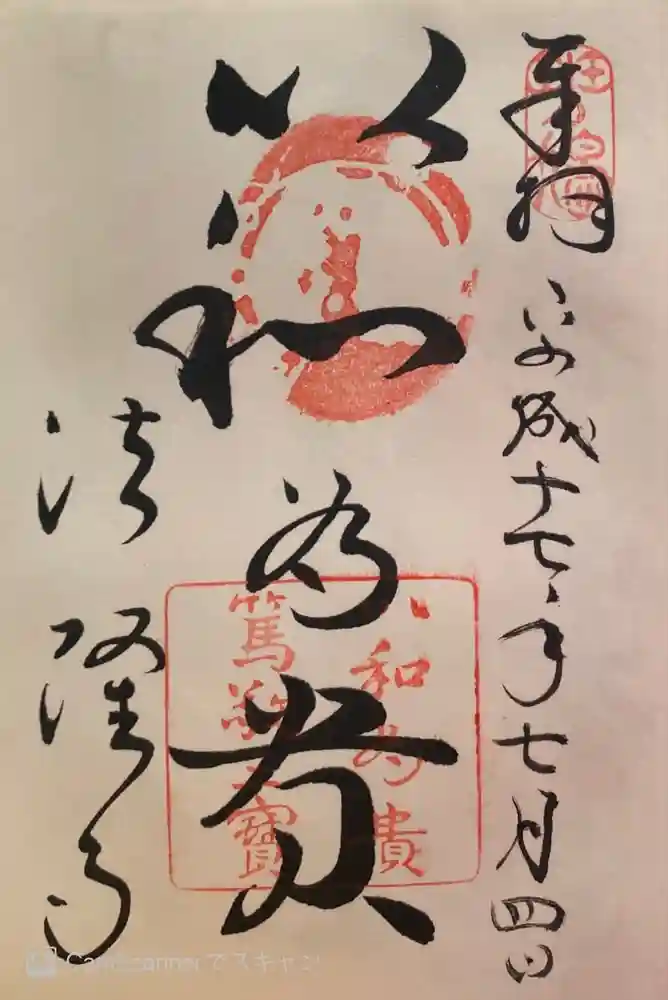 奉拝
平成十七年七月四日
以和為貴
以和為貴
篤敬三寶
法隆寺
CamScannerでスキャン